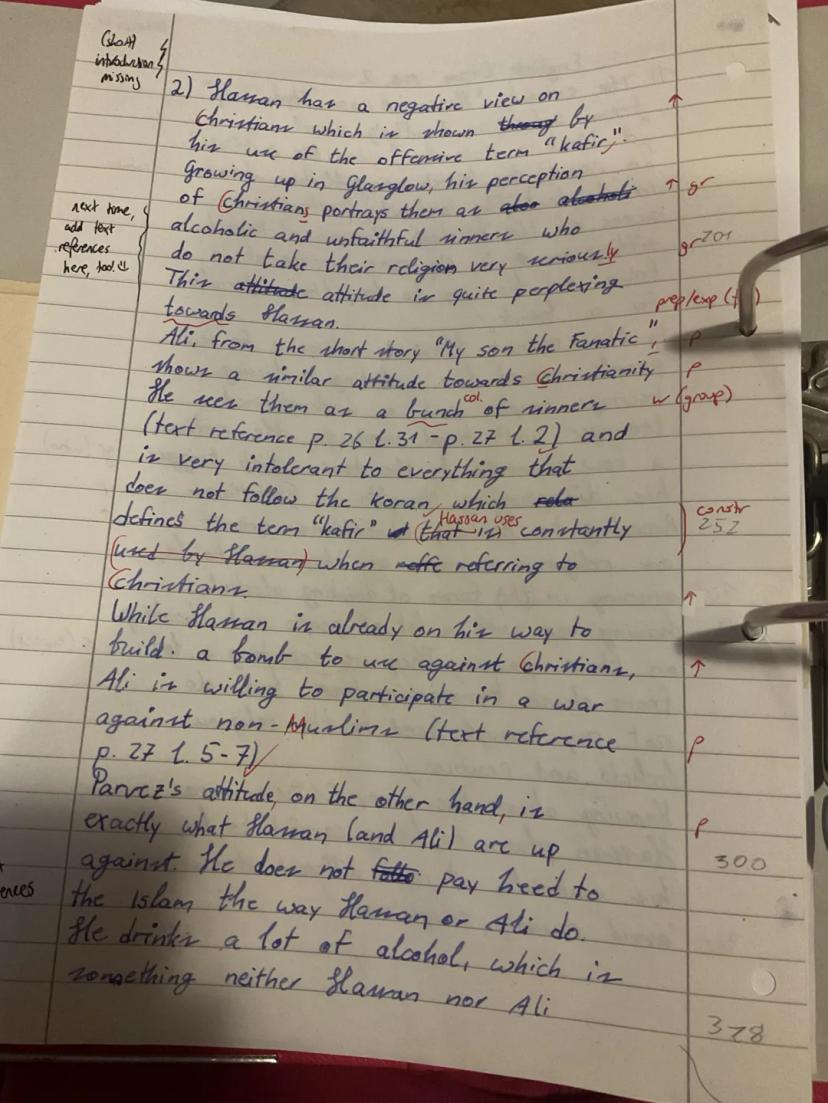 (short)
introduction
missing
2) Hassan has a negative view on ↑
Christians which is shown throug by
his use of the offensive term "kafir,".
Growing up in Glasglow, his perception
of Christians portrays them as also alcoholi ↑ gr
next time,
add text
references
here, too!
alcoholic and unfaithful sinners who
do not take their religion very seriously gr 201
This attitude attitude is quite perplexing
towards Hassan. prep/exp
Ali, from the short story "My son the Fanatic", p
shows a similar attitude towards Christianity p
He sees them as a bunch col. of sinners w (group)
(text reference p. 26 l. 31 - p. 27 l. 2) and
is very intolerant to everything that
does not follow the koran, which rela
defines the term "kafir" (that is) Hassan uses constantly constr 252
(used by Hassan) when referring to
Christians. ↑
While Hassan is already on his way to
build. a bomb to use against Christians, ↑
Ali is willing to participate in a war
against non-Muslims (text reference p
p. 27 l. 5-7)
Parvez's attitude, on the other hand, is p
exactly what Hassan (and Ali) are up
against. He does not pay heed to 300
ences
the Islam the way Hassan or Ali do.
He drinks a lot of alcohol, which is
something neither Hassan nor Ali
328